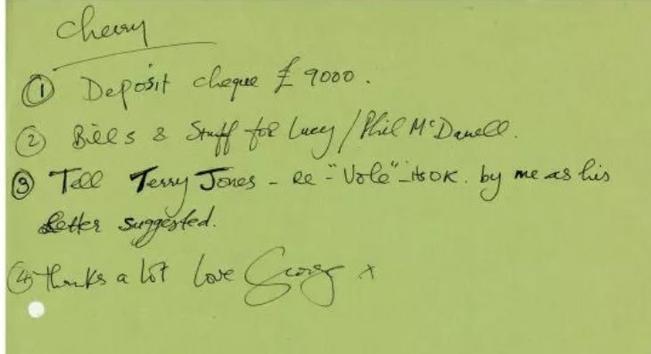 Cherry
① Deposit cheque £ 9000.
② Bills & Stuff for Lucy / Phil McDanell.
③ Tell Terry Jones - Re - "Vole" - its OK. by me as his
letter suggested.
④ thanks a lot love George x